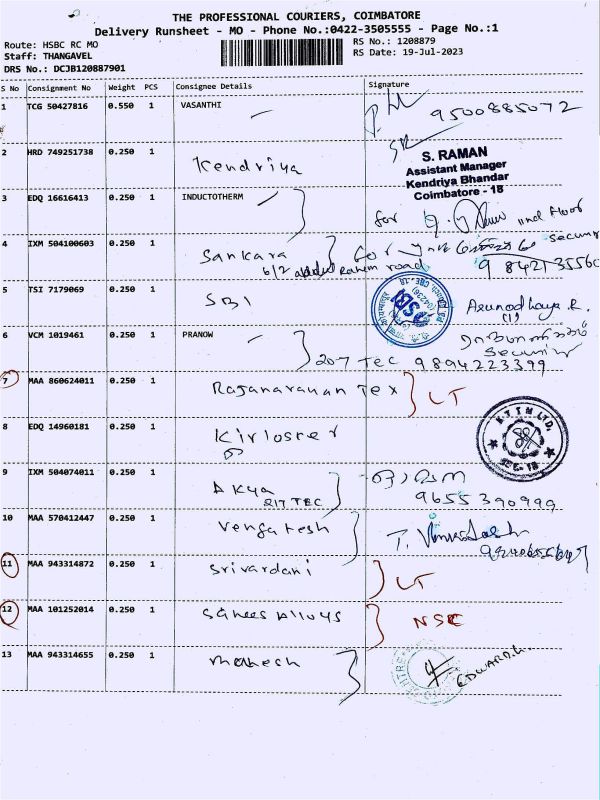 THE PROFESSIONAL COURIERS, COIMBATORE
Delivery Runsheet - MO - Phone No.:0422-3505555 - Page No.:1
Route: HSBC RC MO
RS No.: 1208879
Staff: THANGAVEL
RS Date: 19-Jul-2023
DRS No.: DCJB120887901
S No Consignment No Weight PCS Consignee Details Signature
1 TCG 50427816 0.550 1 VASANTHI
9500885072
2 HRD 749251738 0.250 1 Kendriya
S. RAMAN
Assistant Manager
Kendriya Bhandar
Coimbatore - 18
3 EDQ 16616413 0.250 1 INDUCTOTHERM
for IInd Floor
4 IXM 504100603 0.250 1 Sankara
6/2 road
security
9 842135560
5 TSI 7179069 0.250 1 SBI
SBI
Arunodhaya R.
6 VCM 1019461 0.250 1 PRANOW
Security
207 TEC 9894223399
7 MAA 860624011 0.250 1 Rajanarayan Tex LT
8 EDQ 14960181 0.250 1 Kirlosker
N.T.T.M LTD.
CBE-18
9 IXM 504074011 0.250 1 Akya
217 TEC
9655390999
10 MAA 570412447 0.250 1 Vengatesh
11 MAA 943314872 0.250 1 Srivardani LT
12 MAA 101252014 0.250 1 Alloys NSC
13 MAA 943314655 0.250 1 Mahesh
EDWARD